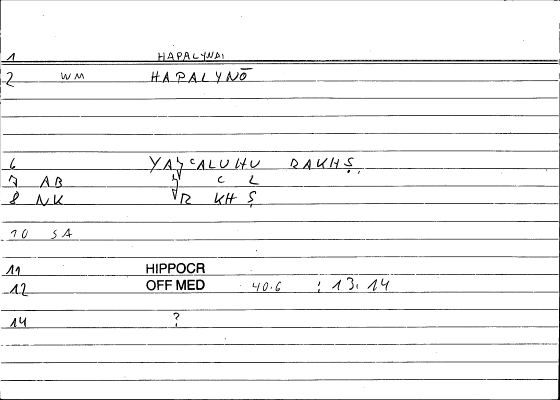 1 HAPALYNAI
2 WM HAPALYNŌ
6 YAꜤCALUHU RAKHṢ.
7 AB Ꜥ C L
8 NK R KH Ṣ
10 SA
11 HIPPOCR
12 OFF MED 40.6 : 13.14
14 ?